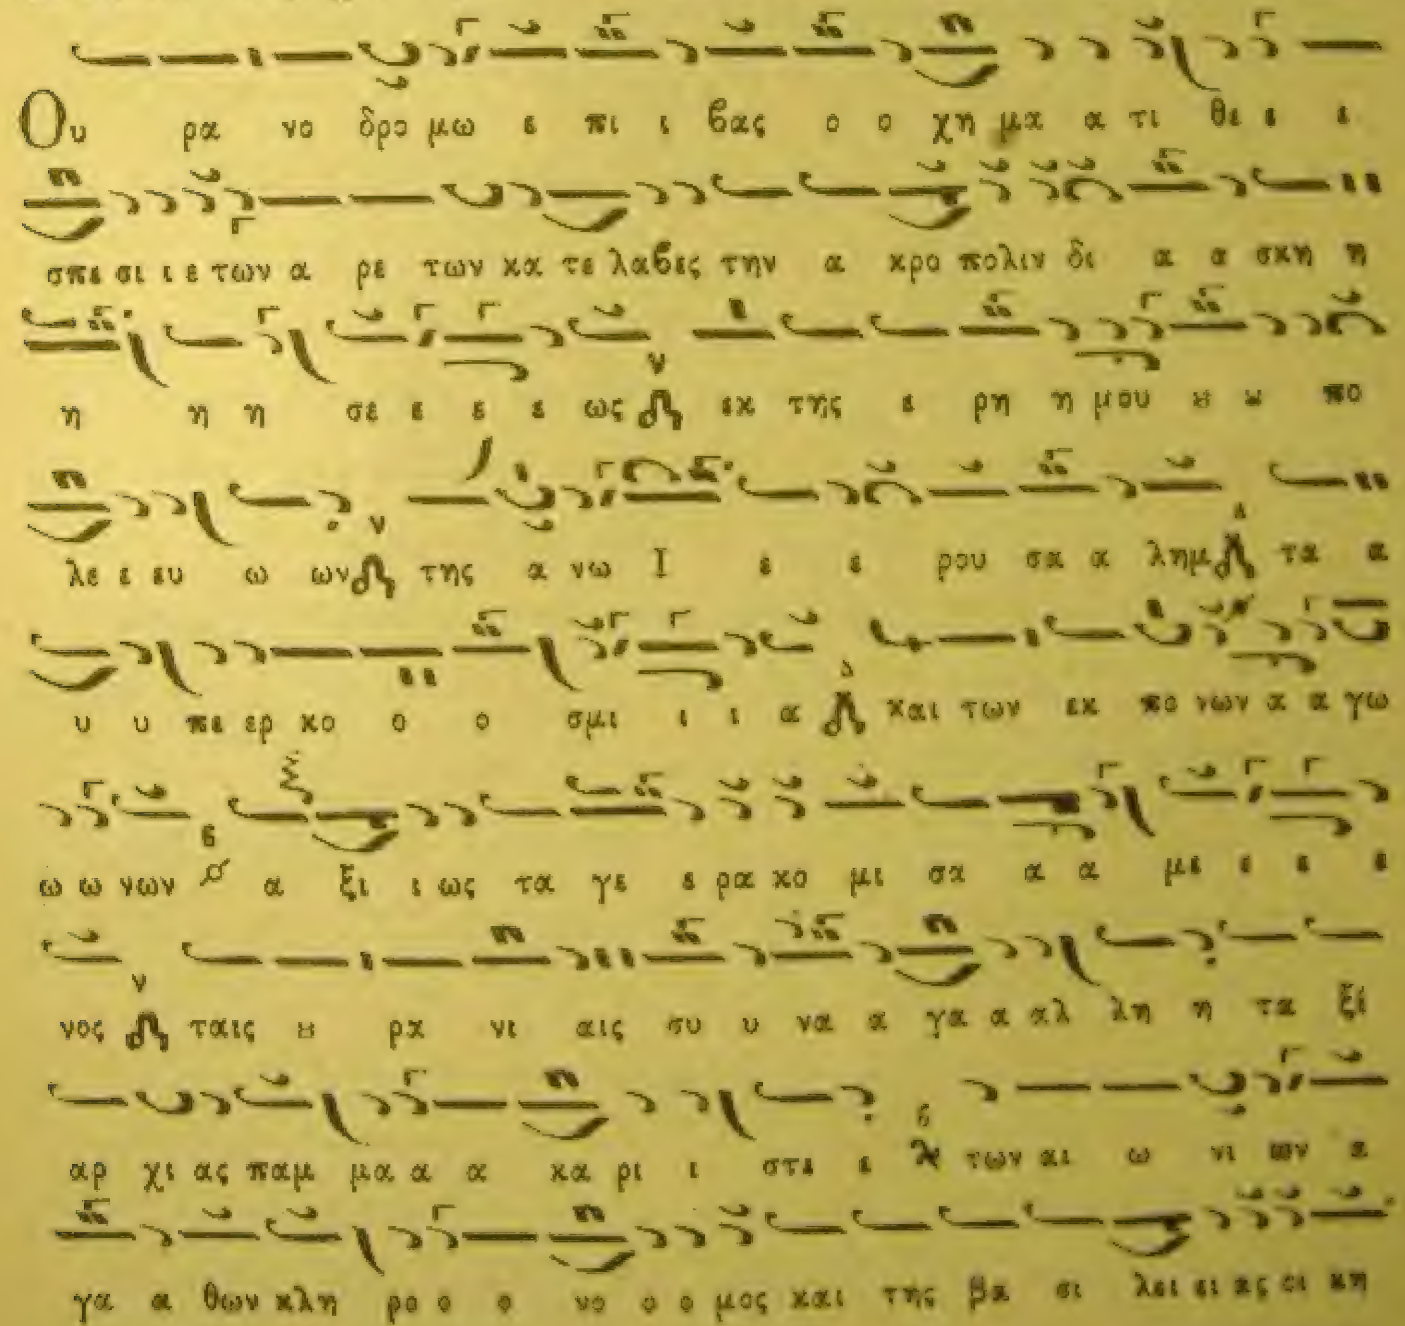 Ου ρα νο δρο μω ε πι ι βας ο ο χη μα α τι θε ε ε
σπε σι ι ε των α ρε των κα τε λαβες την α κρο πολιν δι α α σκη η
η η η σε ε ε ε ως εκ της ε ρη η μου ȣ ȣ πο
λε ε ευ ω ων της α νω Ι ε ε ρου σα α λημ τα α
υ υ πε ερ κο ο ο σμι ι ι α και των εκ πο νων α α γω
ω ω νων α ξι ι ως τα γε ε ρα κο μι σα α α με ε ε ε
νος ταις ȣ ρα νι αις συ υ να α γα α αλ λη η τα ξι
αρ χι ας παμ μα α α κα ρι ι στε ε των αι ω νι ων α
γα α θων κλη ρο ο ο νο ο ο μος και της βα σι λει ει ας οι κη